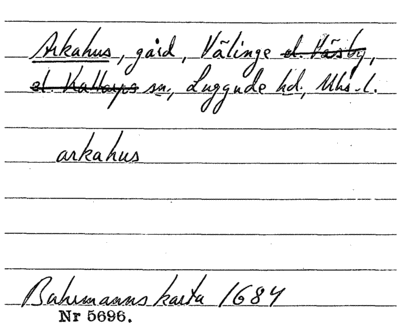 Arkahus, gård, Välinge el. Väsby,
el. Kattarps sn., Luggude hd., Mhs. l.
arkahus
Buhrmanns karta 1684
Nr 5696.